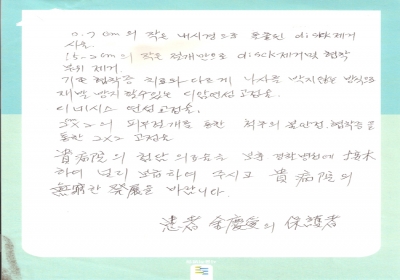 0.7cm의 작은 내시경으로 돌출된 disck제거
시술
1.5~2cm의 작은 절개만으로 disck제거및 협착
부위 제거.
기존 협착증 치료와 다르게 나사를 박지않는 방식으로
재발 방지 할수있는
연성고정술.
2×2의 피부절개를 통한 척추의 불안정, 협착증을
통한 2×2 고정술
貴病院의 첨단 의료술을
하여 널리 보급하여 주시고 貴病院의
無窮한 發展을 바랍니다.
患者 金慶愛의 保護者